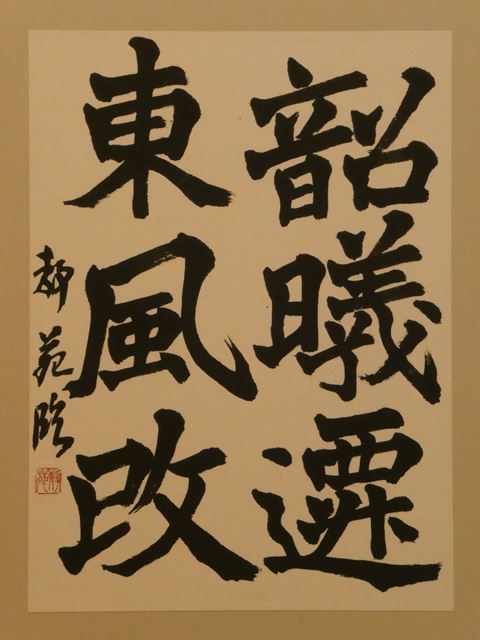 韶曦遷
東風改
静苑臨